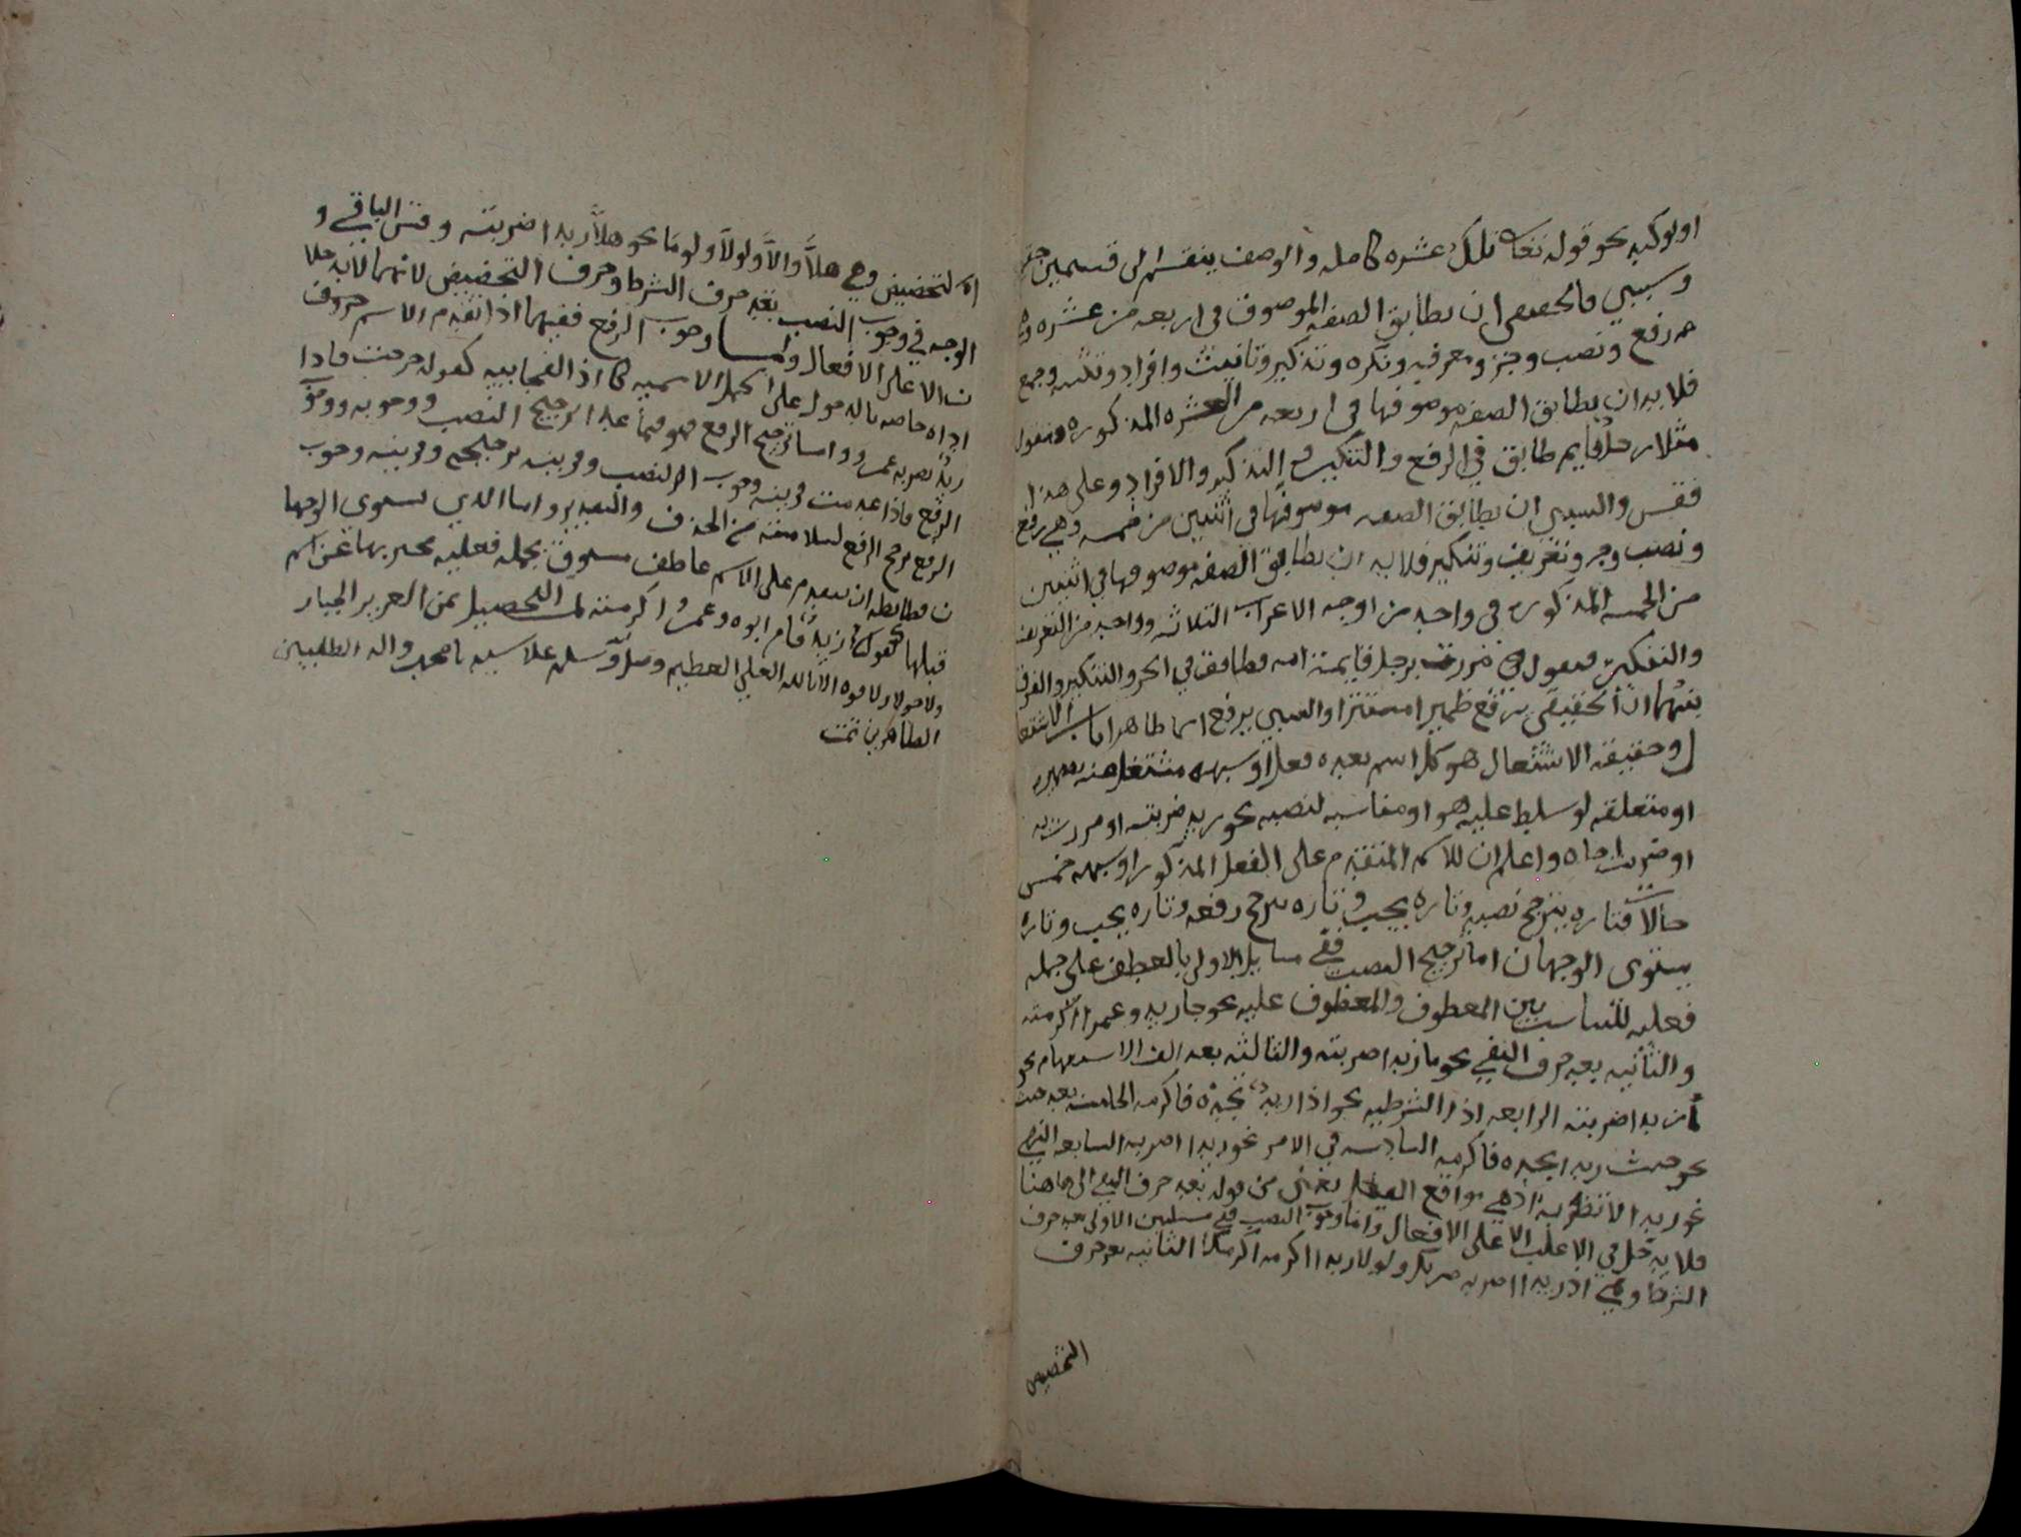 او توكيد نحو قوله تعالى تلك عشره كامله والوصف ينقسم الى قسمين حقيقي
وسببي فالحقيقي ان يطابق الصفه الموصوف في اربعه من عشره وهي
من رفع ونصب وجر ومعرفه ونكره وتذكير وتانيث وافراد وتثنيه وجمع
فلا بد ان يطابق الصفه موصوفها في اربعه من العشره المذكوره فتقول
مثلا رجلٌ قايم طابق في الرفع والتنكير والتذكير والافراد وعلى هذا
فقس والسببي ان يطابق الصفه موصوفها في اثنين من خمسه وهي رفع
ونصب وجر وتعريف وتنكير فلا بد ان يطابق الصفه موصوفها في اثنين
من الخمسه المذكوره في واحد من اوجه الاعراب الثلاثه وواحد من التعريف
والتنكير فتقول مررت برجل قايمة امه فطابقه في الجر والتنكير والفرق
بينهما ان الحقيقي يرفع ظميرا مستترا والسببي يرفع اسما ظاهرا باب الاشتغا
ل وحقيقة الاشتغال هو كل اسم بعده فعل او شبهه مشتغل عنه بضميره
او متعلقه لو سلط عليه هو او مناسبه لنصبه نحو زيد ضربته او مررت به
او ضربت اخاه واعلم ان للاسم المتقدم على الفعل المذكور او شبهه خمس
حالات فتاره يترجح نصبه وتاره يجب وتاره يترجح رفعه وتاره يجب وتاره
يستوى الوجهان اما ترجيح النصب ففي مسايل الاولى بالعطف على جمله
فعليه للتناسب بين المعطوف والمعطوف عليه نحو جا زيد وعمرا اكرمته
والثانيه بعد حرف النفي نحو ما زيدا ضربته والثالثه بعد الف الاستفهام نحو
أزيدا ضربته الرابعه اذا الشرطيه نحو اذا زيدا تجده فاكرمه الخامسه بعد حيث
نحو حيث زيدا تجده فاكرمه السادسه في الامر نحو زيدا اضربه السابعه النهي
نحو زيدا لا تضربه اذهي مواقع الفعل يعني من قوله بعد حرف النفي الى هاهنا
فلا يدخل في الاغلب الا على الافعال واما وجوب النصب ففي مسئلتين الاولى بعد حرف
الشرط وهي ان زيدا اضربه ضربك ولو زيدا اكرمه اكرمك الثانيه بعد حرف
التخضيض
اة لتخضيض وهي هلاَّ والاَّ ولولاَ ولومَا نحو هلاَّ زيدا ضربته وقس الباقي و
الوجه في وجوب النصب بعد حرف الشرط وحرف التخضيض لانهما لا يدخلا
ن الا على الافعال واما وجوب الرفع ففيما اذا تقدم الاسم حروف
اداه خاصه بالدخول على الجمل الاسميه كاذا الفجاييه كقوله خرجت فاذا
زيدٌ يضربه عمرو واما ترجيح الرفع فهو فيما عدا ترجيح النصب ووجوبه ووجوب
الرفع فاذا عدمت قرينه وجوب النصب وقرينه ترجيحه وقرينه وجوب
الرفع ترجح الرفع لسلامته من الحذف والتقدير واما الذي يستوي الوجها
ن فظابطه ان يتقدم على الاسم عاطف مسبوق بجمله فعليه مخبر بها عن اسم
قبلها كقولك زيدٌ قام ابوه وعمرٌو اكرمته تم التحصيل بمن العزيز الجبار
ولا حول ولا قوه الا بالله العلي العظيم وصل وسلم على سيدنا محمد واله الطيبين
الطاهرين تمت